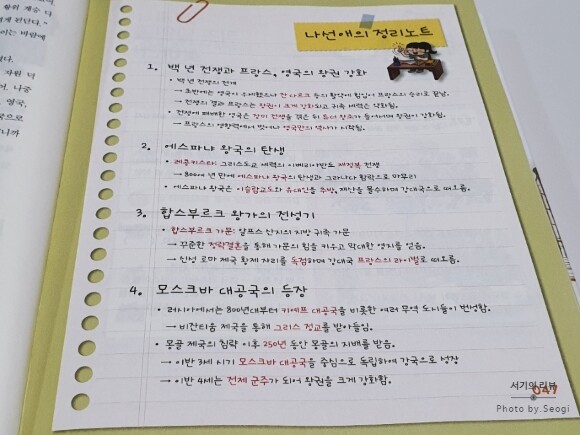 황위 계승 다
게 된단다."
이는 바람에
다.
자원 덕
어. 나중
영국,
국으로
니까
나선애의 정리노트
1. 백 년 전쟁과 프랑스, 영국의 왕권 강화
• 백 년 전쟁의 전개
→ 초반에는 영국이 우세했으나 잔 다르크 등의 활약에 힘입어 프랑스의 승리로 끝남.
→ 전쟁의 결과 프랑스는 왕권이 크게 강화되고 귀족 세력은 약화됨.
• 전쟁에 패배한 영국은 장미 전쟁을 겪은 뒤 튜더 왕조가 들어서며 왕권이 강화됨.
→ 프랑스의 영향력에서 벗어나 영국만의 역사가 시작됨.
2. 에스파냐 왕국의 탄생
• 레콩키스타: 그리스도교 세력의 이베리아반도 재정복 전쟁
→ 800여 년 만에 에스파냐 왕국의 탄생과 그라나다 함락으로 마무리
• 에스파냐 왕국은 이슬람교도와 유대인을 추방, 재산을 몰수하며 강대국으로 떠오름.
3. 합스부르크 왕가의 전성기
• 합스부르크 가문: 알프스 산지의 지방 귀족 가문
→ 꾸준한 정략결혼을 통해 가문의 힘을 키우고 막대한 영지를 얻음.
→ 신성 로마 제국 황제 자리를 독점하며 강대국 프랑스의 라이벌로 떠오름.
4. 모스크바 대공국의 등장
• 러시아에서는 800년대부터 키예프 대공국을 비롯한 여러 무역 도시들이 번성함.
→ 비잔티움 제국을 통해 그리스 정교를 받아들임.
• 몽골 제국의 침략 이후 250년 동안 몽골의 지배를 받음.
→ 이반 3세 시기 모스크바 대공국을 중심으로 독립하여 강국으로 성장
→ 이반 4세는 전제 군주가 되어 왕권을 크게 강화함.
047
서기의 리뷰
Photo by.Seogi